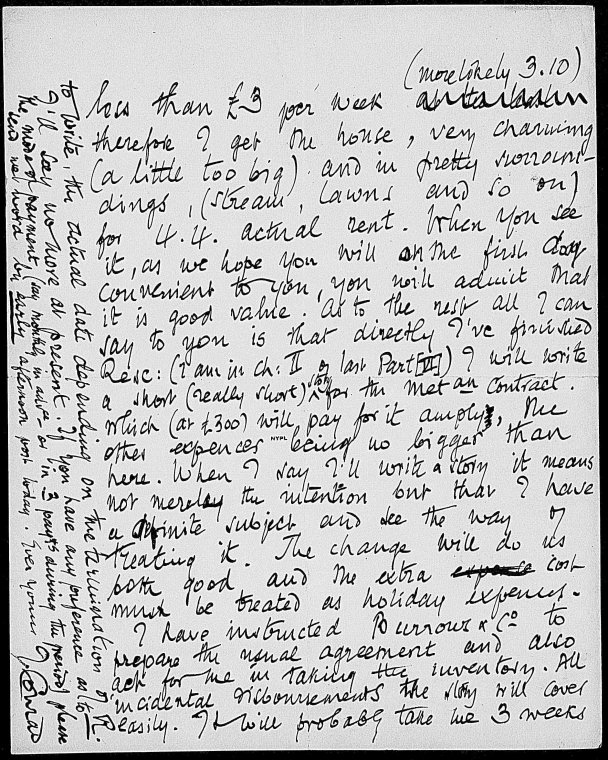 (more likely 3.10)
less than £3 per week
therefore I get the house, very charming
(a little too big) and in pretty surroun-
dings, (stream, lawns and so on)
for 4.4. actual rent. When you see
it, as we hope you will on the first day
convenient to you, you will admit that
it is good value. As to the rest all I can
say to you is that directly I've finished
Resc: (I am in ch: II of last Part [VI]) I will write
a short (really short) story for the Met an contract.
which (at £300) will pay for it amply, the
other expences being no bigger than
NYPL
here. When I say I'll write a story it means
not merely the intention but that I have
a definite subject and see the way of
treating it. The change will do us
both good and the extra expense cost
must be treated as holiday expences.
I have instructed Burrows & Co to
prepare the usual agreement and also
act for me in taking the inventory. All
incidental disboursements the story will cover
easily. It will probably take me 3 weeks
to write, the actual date depending on the termination of R.
I'll say no more at present. If you have any preference as to
the mode of payment, (say monthly in adv ce or in 2 pay ts during the period) please
send me word by early afternoon post today Ever yours J. Conrad